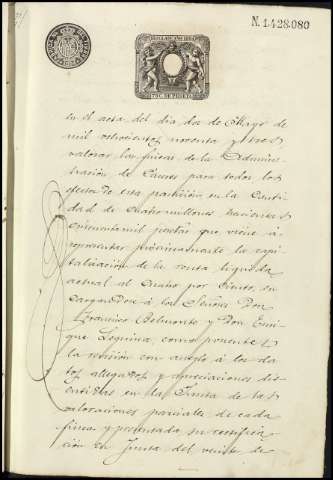 N. 1.428.080
en el acta del dia dos de Mayo de
mil ochocientos noventa y tres
valorar las fincas de la Adminis-
tración de Cáceres para todos los
efectos de esta partición en la Canti-
dad de cuatro millones trescientas
cincuenta mil pesetas que viene á
representar próximamente la capi-
talización de la renta líquida
actual al cuatro por ciento, en-
cargandose á los Señores Don
Francisco Belmonte y Don Enri-
que Leguina, como ponentes
la revisión con arreglo á los da-
tos allegados y apreciaciones dis-
cutidas en la Junta de las
valoraciones parciales de cada
finca y presentada su rectifica-
ción en Junta del veinte de